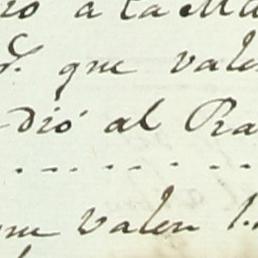 a la Ma
que vale
dió al Ra
valen